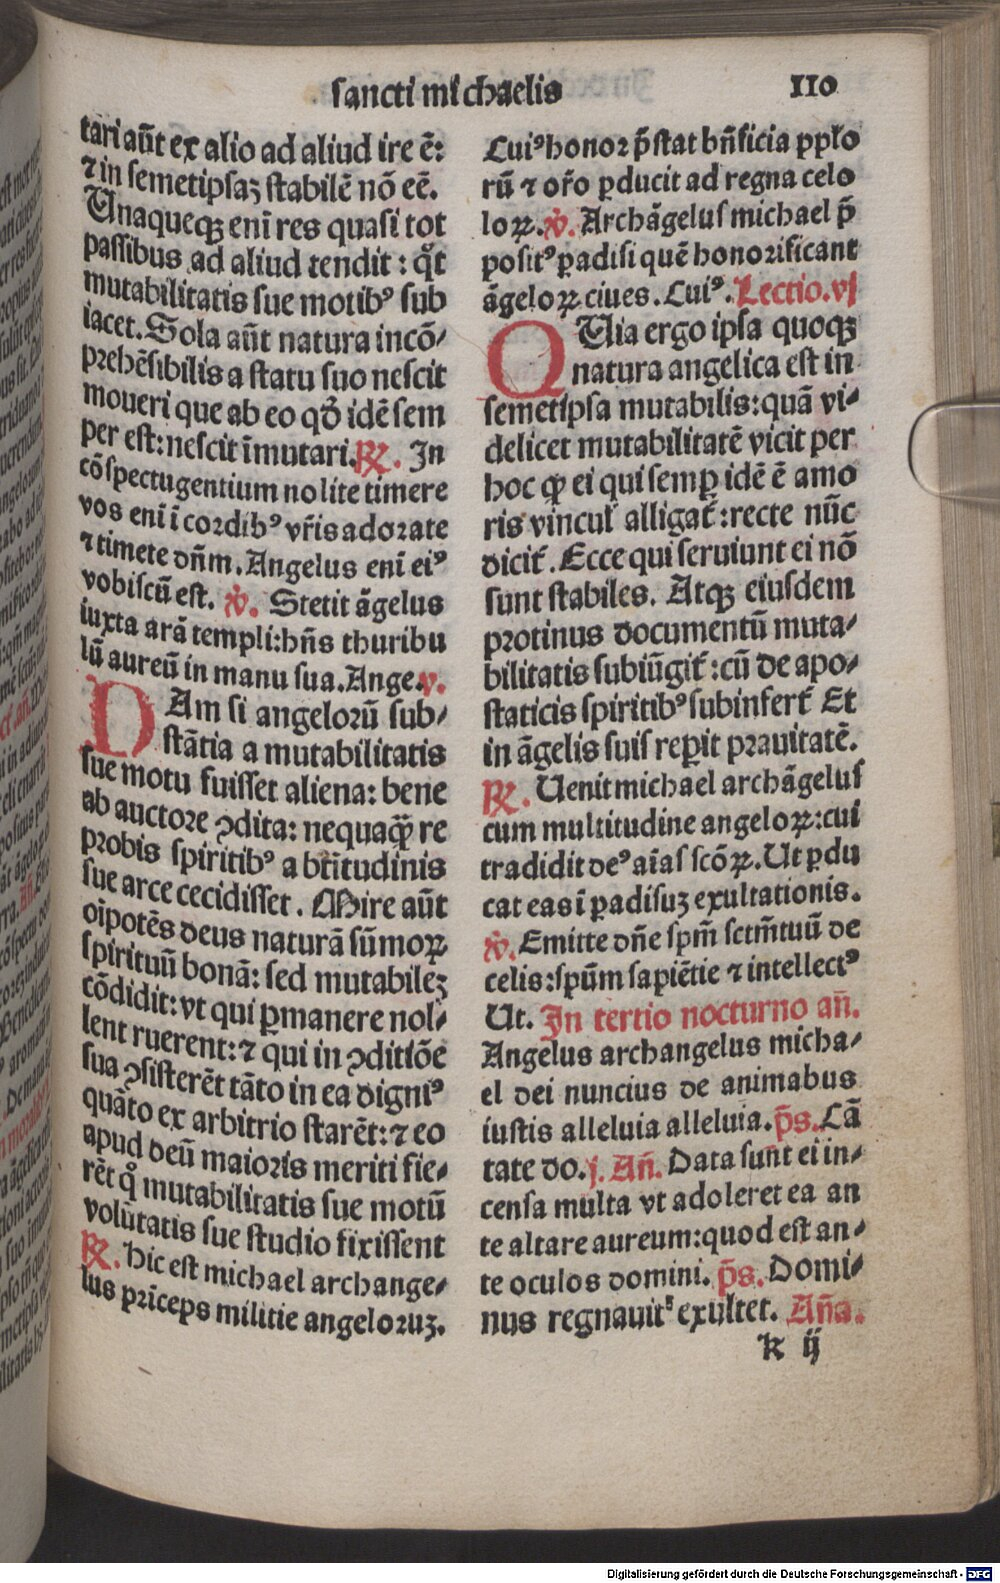 sancti michaelis
110
tari aūt ex alio ad aliud ire ē:
⁊ in semetipsaꝫ stabilē nō eē.
Unaqueqꝫ eni̅ res quasi tot
passibus ad aliud tendit: qͦt
mutabilitatis sue motibꝰ sub
iacet. Sola aūt natura incō⸗
prehēsibilis a statu suo nescit
moueri que ab eo qđ idē sem
per est: nescit īmutari. ℟. In
cōspectu gentium nolite timere
vos eni̅ ī cordibꝰ vr̄is adorate
⁊ timete dn̄m. Angelus eni̅ eiꝰ
vobiscū est. ℣. Stetit āgelus
iuxta arā templi: hn̄s thuribu
lū aureū in manu sua. Ange. v.
DAm si angelorū sub⸗
stātia a mutabilitatis
sue motu fuisset aliena: bene
ab auctore ꝯdita: nequaqꝫ̄ re
probis spiritibꝰ a bt̄itudinis
sue arce cecidisset. Mire aūt
oīpotēs deus naturā sūmoꝝ
spirituū bonā: sed mutabileꝫ
cōdidit: vt qui ꝑmanere nol⸗
lent ruerent: ⁊ qui in ꝯditiōe
sua ꝯsisterēt tāto in ea digniꝰ
quāto ex arbitrio starēt: ⁊ eo
apud deū maioris meriti fie⸗
rēt qͦ mutabilitatis sue motū
volūtatis sue studio fixissent
℟. Hic est michael archange⸗
lus prīceps militie angeloruꝫ.
Cuiꝰ honor p̄stat bn̄ficia ppl̄o
rū ⁊ or̄o ꝑducit ad regna celo
loꝝ. ℣. Archāgelus michael p̄
positꝰ ꝑadisi quē honorificant
āgeloꝝ ciues. Cuiꝰ. Lectio. vj
QUia ergo ipsa quoqꝫ
natura angelica est in
semetipsa mutabilis: quā vi⸗
delicet mutabilitatē vicit per
hoc ꝙ ei qui semꝑ idē ē amo
ris vincul̄ alligat̄: recte nūc
dicit̄. Ecce qui seruiunt ei nō
sunt stabiles. Atqꝫ eiusdem
protinus documentū muta⸗
bilitatis subiūgit̄: cū de apo⸗
staticis spiritibꝰ subinfert̄ Et
in āgelis suis reꝑit prauitatē.
℟. Uenit michael archāgelus
cum multitudine angeloꝝ: cui
tradidit deꝰ aīas scōꝝ. Ut ꝑdu
cat eas ī ꝑadisuꝫ exultationis.
℣. Emitte dn̄e spm̄ sctm̄ tuū de
celis: spūm sapiētie ⁊ intellectꝰ
Ut. In tertio nocturno an̄.
Angelus archangelus micha⸗
el dei nuncius de animabus
iustis alleluia alleluia. p̄s. Cā
tate do. j. An̄. Data sunt ei in⸗
censa multa vt adoleret ea an
te altare aureum: quod est an⸗
te oculos domini. p̄s. Domi⸗
nus regnauit exultet. An̄a.
k ij
Digitalisierung gefördert durch die Deutsche Forschungsgemeinschaft - DFG